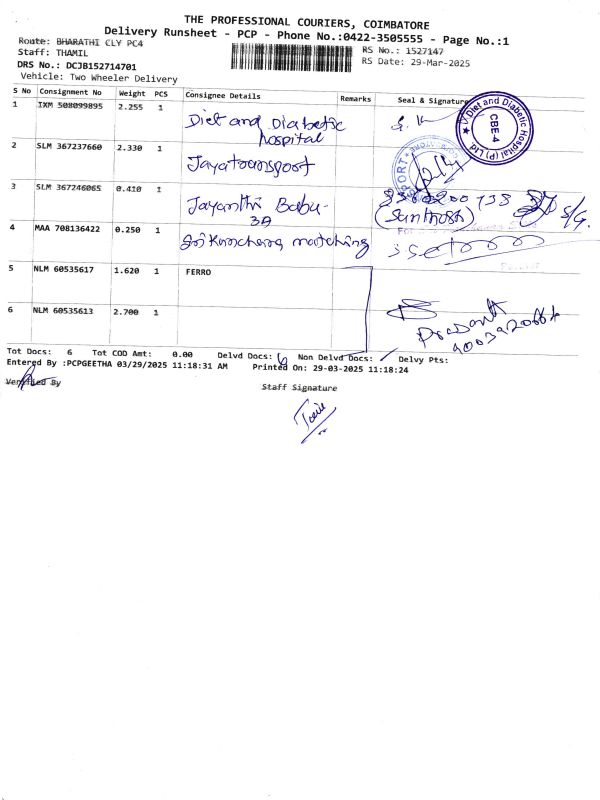 THE PROFESSIONAL COURIERS, COIMBATORE
Delivery Runsheet - PCP - Phone No.:0422-3505555 - Page No.:1
Route: BHARATHI CLY PC4
RS No.: 1527147
Staff: THAMIL
RS Date: 29-Mar-2025
DRS No.: DCJB152714701
Vehicle: Two Wheeler Delivery
S No Consignment No Weight PCS Consignee Details Remarks Seal & Signature
1 IXM 508099895 2.255 1 Diet and Diabetic hospital
Diet and Diabetic Hospital (P) Ltd
CBE-4
2 SLM 367237660 2.330 1 Jayatransport
3 SLM 367246065 0.410 1 Jayanthi Babu-
3A
(Santhosh)
4 MAA 708136422 0.250 1 Sri Kanchana matching
5 NLM 60535617 1.620 1 FERRO
6 NLM 60535613 2.700 1
Prasanth
Tot Docs: 6 Tot COD Amt: 0.00 Delvd Docs: 6 Non Delvd Docs: Delvy Pts:
Entered By :PCPGEETHA 03/29/2025 11:18:31 AM Printed On: 29-03-2025 11:18:24
Verified By
Staff Signature